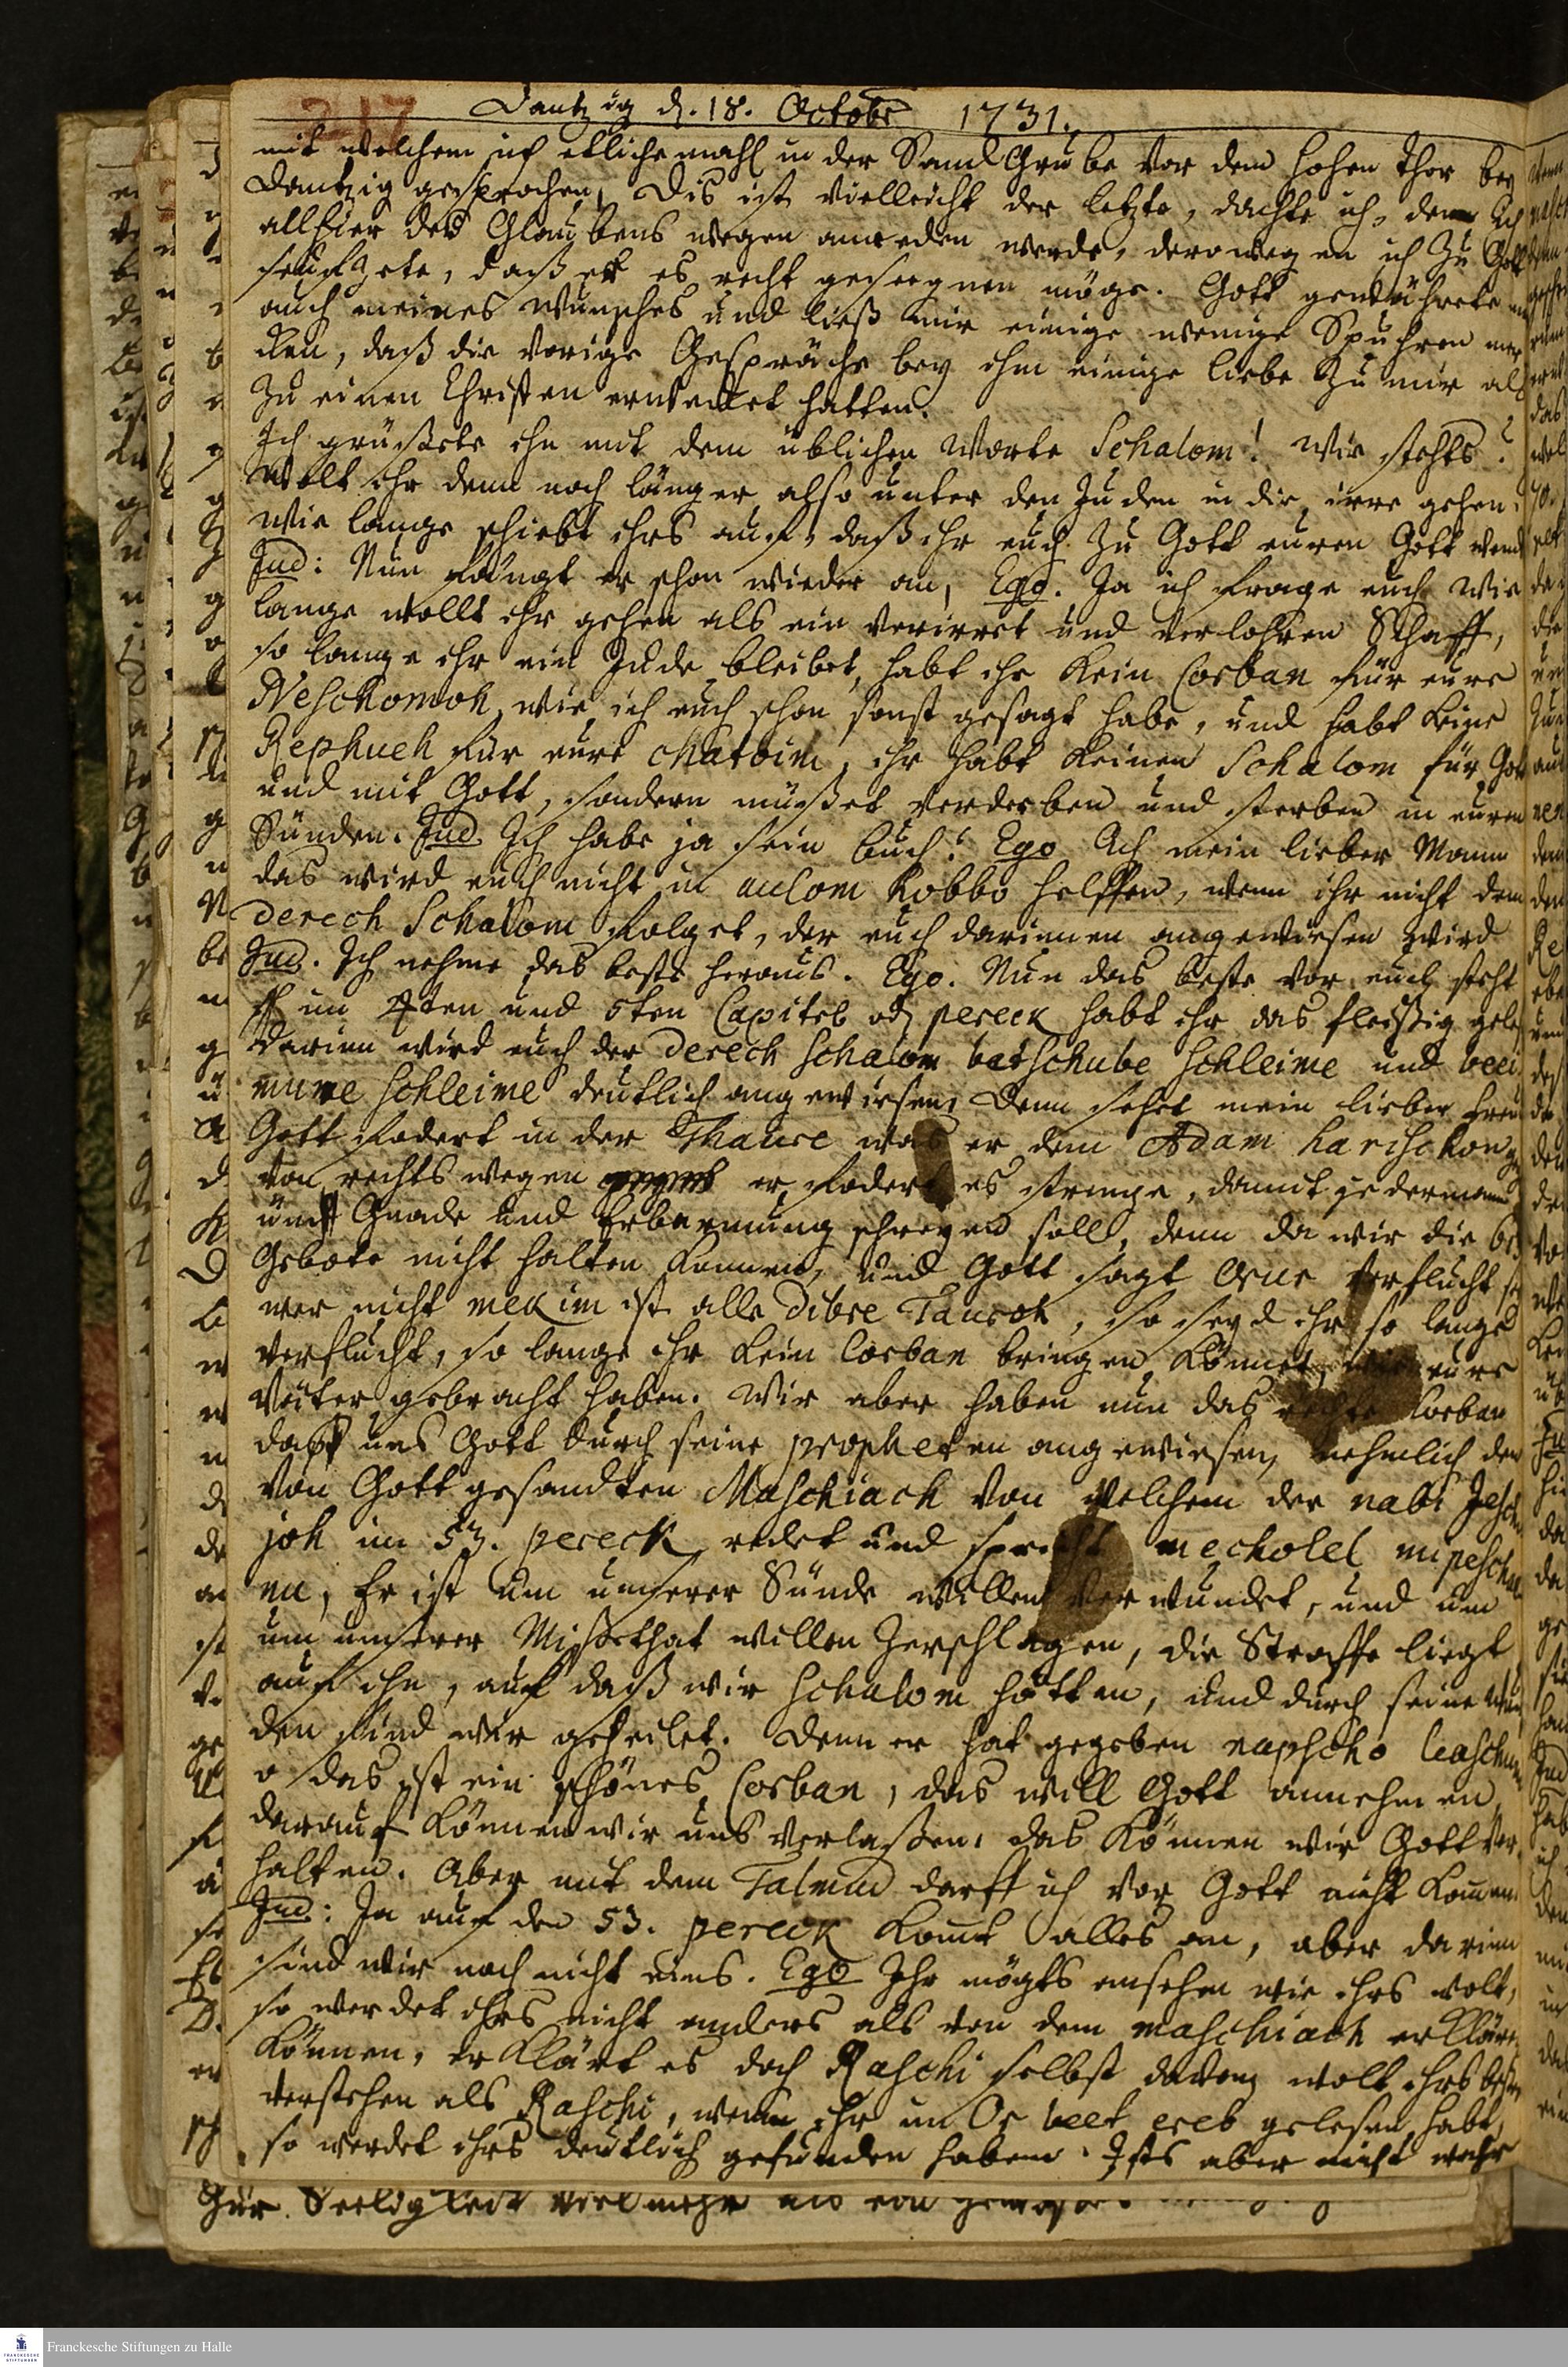 217
Dantzig d. 18. Octobr 1731.
mit welchem ich etliche mahl in der Sand Grube vor dem hohen Thor bey
Dantzig gesprochen, Dis ist vielleicht der letzte, dachte ich, den ich
allhier des Glaubens wegen anreden werde, derowegen ich zu Gott
seufzete, daß er es recht gesegnen möge. Gott gewährete
auch meines Wunsches und ließ mir einige wenige Spuhren mer
cken, daß die vorige Gespräche bey ihm einige liebe zu mir als
zu einen Christen erwecket hatten.
Ich grüßete ihn mit dem üblichen Worte Schalom! Wie stehts?
Wolt ihr denn noch länger also unter den Juden in die irre gehen?
Wie lange schiebt ihrs auf, daß ihr euch zu Gott euren Gott wend
Jud: Nun fängt er schon wieder an, Ego. Ja ich frage euch wie
lange wollt ihr gehen als ein verirret und verlohren Schaff,
so lange ihr ein Jude bleibet, habt ihr kein Corban für eure
Neschomoh, wie ich euch schon sonst gesagt habe, und habt keine
Rephueh für eure chatoim, ihr habt keinen Schalom für Gott
und mit Gott, sondern müßet verderben und sterben in euren
Sünden. Jud. Ich habe ja sein Buch! Ego Ach mein lieber Mann
das wird euch nicht in aulom habbo helffen, wenn ihr nicht dem
derech Schalom folget, der euch darinnen angewiesen wird
Jud. Ich nehme das beste heraus. Ego. Nun das beste vor euch steht
im 4ten und 5ten Capitel od pereck habt ihr das fleißig geles
darinn wird euch der derech schalom batschube schleime und beei
mune schleime deutlich angewiesen, Denn sehet mein lieber Freu
Gott fodert in der Thaure was er dem Adam harischon
von rechts wegen er fodert es strenge, damit jedermann
umb Gnade und Erbarmung schreyen soll, denn da wir die
Gebote nicht halten können, und Gott sagt Orur verflucht sey
wer nicht mekim ist alle dibre Tauroh, so seyd ihr so lange
verflucht, so lange ihr kein Corban bringen könnet, wie eure
Väter gebracht haben. Wir aber haben nun das rechte Corban
daß uns Gott durch seine propheten angewiesen, nehmlich den
von Gott gesandten Maschiach von welchem der nabi Jescha
joh im 53. pereck redet und spricht mecholel mipescho
nu, Er ist um unserer Sünde willen verwundet, und um
um unserer Missethat willen zerschlagen, die Straffe liegt
auf ihn, auf daß wir schalom hätten, und durch seine Wun
den sind wir geheilet. Denn er hat gegeben napscho leaschom
o das ist ein schönes Corban, das will Gott annehmen,
darauf können wir uns verlaßen, das können wir Gott vor
halten. Aber mit dem Talmud darff ich vor Gott nicht komen
Jud: Ja auf den 53. pereck komt alles an, aber darinn
sind wir noch nicht eins. Ego Ihr mögts ansehen wie ihrs wolt,
so werdet ihrs nicht anders als von dem maschiach erkläre
können, erklärt es doch Raschi selbst davon, wolt ihrs beßer
verstehen als Raschi, wenn ihr im Or leet ereb gelesen habt,
so werdet ihrs deutlich gefunden haben. Ists aber nicht wahr
zur Seeligkeit vielmehr als
Franckesche Stiftungen zu Halle